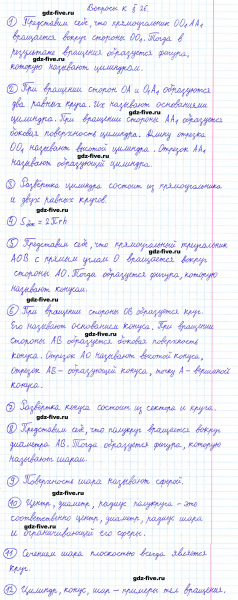 Вопросы к § 26.
① Представим себе, что прямоугольник OO₁AA₁
вращается вокруг стороны OO₁. Тогда в
результате вращения образуется фигура,
которую называют цилиндром.
② При вращении сторон OA и O₁A₁ образуются
два равных круга. Их называют основаниями
цилиндра. При вращении стороны AA₁ образуется
боковая поверхность цилиндра. Длину отрезка
OO₁ называют высотой цилиндра. Отрезок AA₁
называют образующей цилиндра.
gdz-five.ru
③ Развертка цилиндра состоит из прямоугольника
и двух равных кругов.
④ Sбок = 2πrh
⑤ Представим себе, что прямоугольный треугольник
AOB с прямым углом O вращается вокруг
стороны AO. Тогда образуется фигура, которую
называют конусом.
⑥ При вращении стороны OB образуется круг.
Его называют основанием конуса. При вращении
стороны AB образуется боковая поверхность
конуса. Отрезок AO называют высотой конуса,
отрезок AB - образующей конуса, точку A - вершиной
конуса.
⑦ Развертка конуса состоит из сектора и круга.
⑧ Представим себе, что полукруг вращается вокруг
диаметра AB. Тогда образуется фигура, которую
называют шаром.
⑨ Поверхность шара называют сферой.
⑩ Центр, диаметр, радиус полукруга - это
соответственно центр, диаметр, радиус шара
и ограничивающей его сферы.
⑪ Сечением шара плоскостью всегда является
круг.
⑫ Цилиндр, конус, шар - примеры тел вращения.